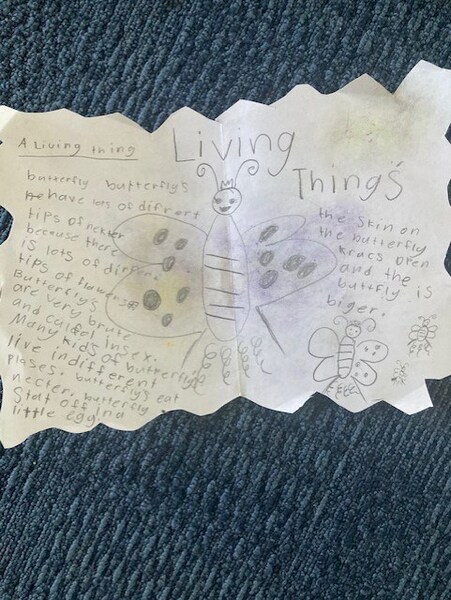 Living
Things
A Living thing
butterfly butterflys
have lots of difrent
tips of necter
because there
is lots of difren
tips of flowers
Butterflys
are very brute
and calder insex.
Many kids of butterflys
live indifferent
plases. butterflys eat
necter. butterfly
Start off ina
little egg
the skin on
the butterfly
kracs open
and the
buttfly is
biger.